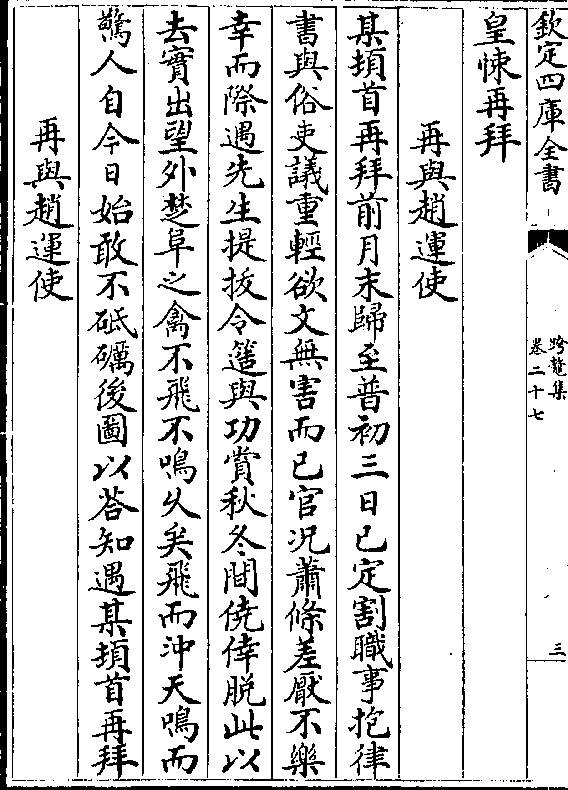 欽定四庫全書
跨鼇集
卷二十七
三
皇悚再拜
再與趙運使
某頓首再拜前月末歸至普初三日已定割職事抱律
書與俗吏議重輕欲文無害而已官况蕭條差厭不樂
幸而際遇先生提拔令簉與功賞秋冬間僥倖脫此以
去實出望外楚阜之禽不飛不鳴久矣飛而沖天鳴而
驚人自今日始敢不砥礪後圖以荅知遇某頓首再拜
再與趙運使